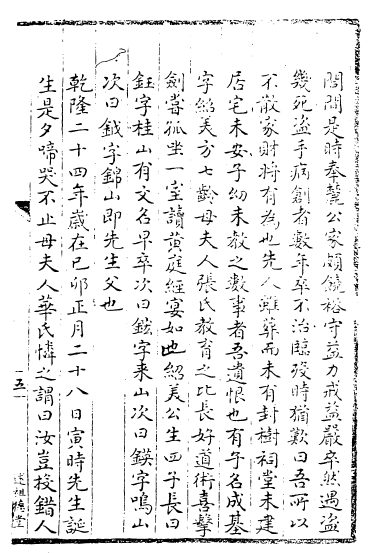 閭閻是時奉麓公家頗饒裕守益力戒益嚴卒然遇盜
幾死盜手病創者數年卒不治臨歿時猶歎曰吾所以
不散家財將有為也先人雖葬而未有封樹祠堂未建
居宅未安子幼未教之數事者吾遺恨也有子名成基
字紹美方七齡母夫人張氏教育之比長好道術喜擊
劍嘗孤坐一室讀黃庭經宴如也紹美公生四子長曰
鈺字桂山有文名早卒次曰鉉字來山次曰鍈字鳴山
次曰鉞字錦山即先生父也
乾隆二十四年歲在己卯正月二十八日寅時先生誕
生是夕啼哭不止母夫人華氏憐之謂曰汝豈投錯人
五
述祖德堂